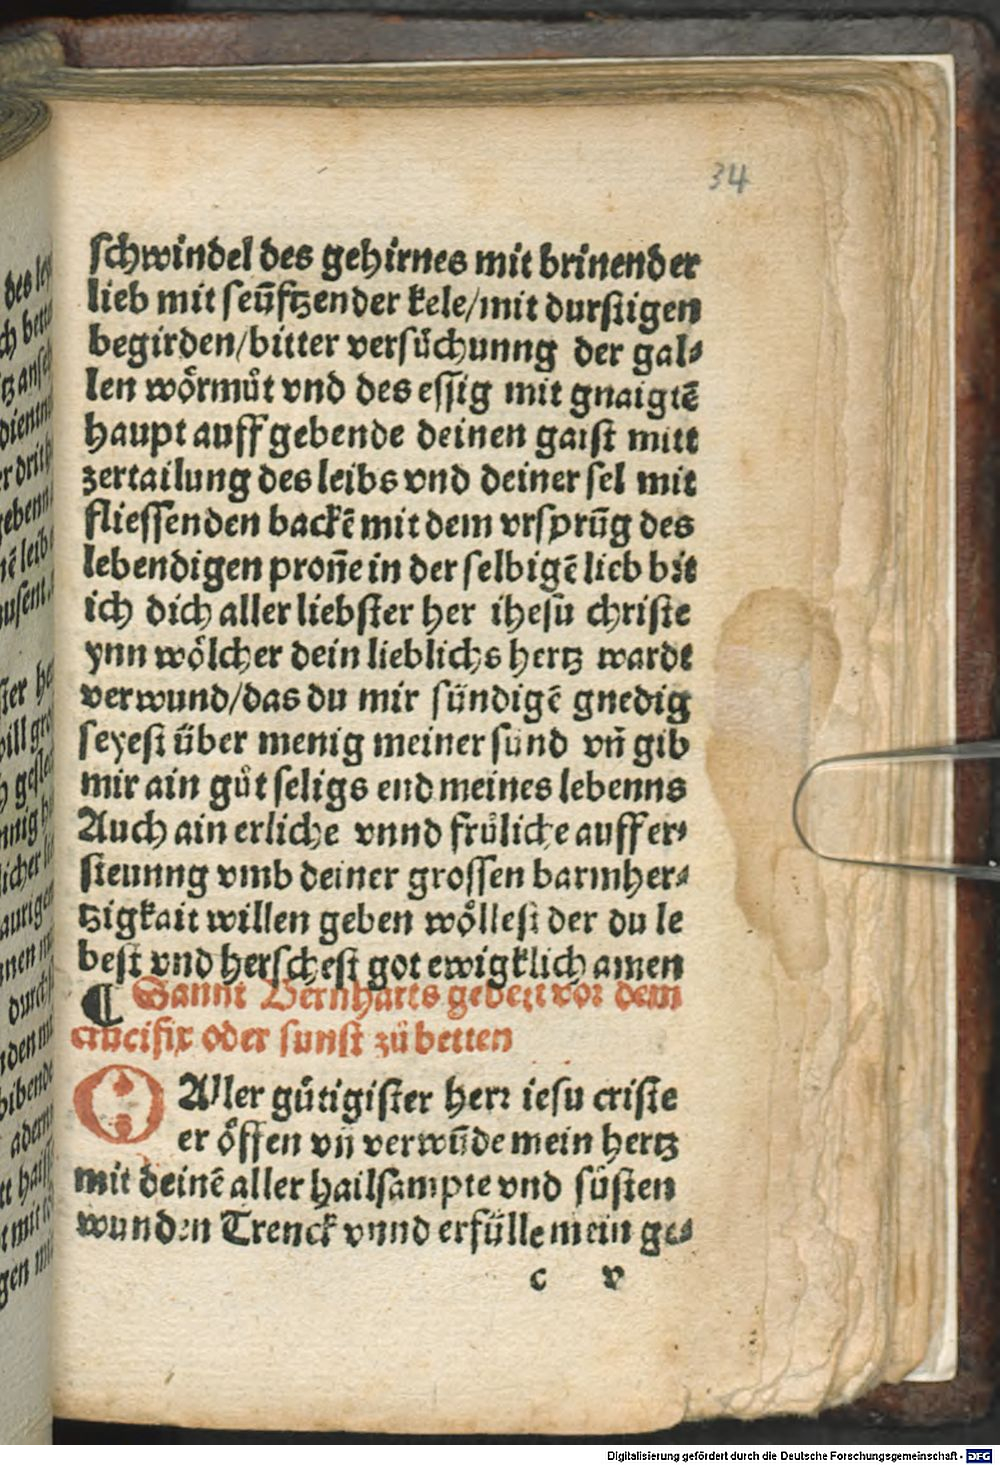 34
schwindel des gehirnes mit brinender
lieb mit seūftzender kele/mit durstigen
begirden/bitter versůchunng der gal⸗
len wörmůt vnd des essig mit gnaigtē
haupt auff gebende deinen gaist mitt
zertailung des leibs vnd deiner sel mit
fliessenden backē mit dem vrsprūg des
lebendigen pron̄e in der selbigē lieb bit
ich dich aller liebster her ihesū christe
ynn wölcher dein lieblichs hertz wardt
verwund/das du mir sündigē gnedig
seyest über menig meiner sund vn̄ gib
mir ain gůt seligs end meines lebenns
Auch ain erliche vnnd frůliche auffer⸗
steunng vmb deiner grossen barmher⸗
tzigkait willen geben wöllest der du le
best vnd herschest got ewigklich amen
¶ Sannt Bernharts gebett vor dem
crucifix oder sunst zů betten
O Aller gůtigister herr iesu criste
er öffen vn̄ verwūde mein hertz
mit deinē aller hailsampte vnd süsten
wunden Trenck vnnd erfülle mein ge⸗
c v
Digitalisierung gefördert durch die Deutsche Forschungsgemeinschaft - DFG